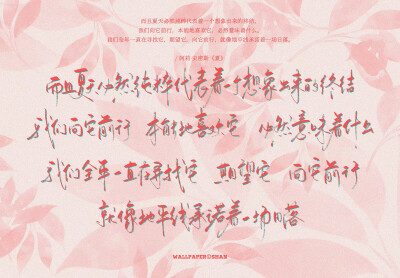 而且夏天必然纯粹代表着一个想象出来的终结。
我们向它前行，本能地喜欢它，必然意味着什么。
我们全年一直在寻找它，期望它，向它前行，就像地平线承诺着一场日落。
/ 阿莉·史密斯《夏》
而且夏天必然纯粹代表着一个想象出来的终结
我们向它前行 本能地喜欢它 必然意味着什么
我们全年一直在寻找它 期望它 向它前行
就像地平线承诺着一场日落
WALLPAPER@SHAN